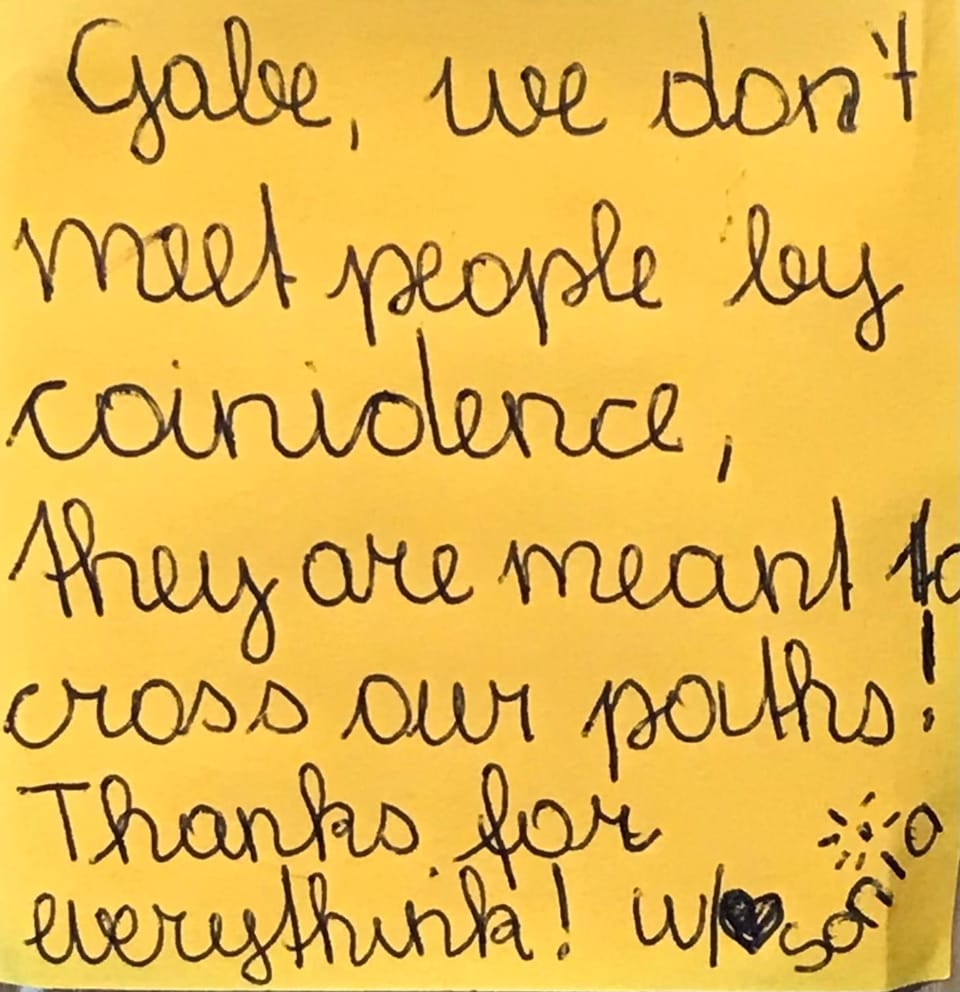 Gabe, we don't
meet people by
coinidence,
they are meant to
cross our paths!
Thanks for
everythink! w/♥sonia